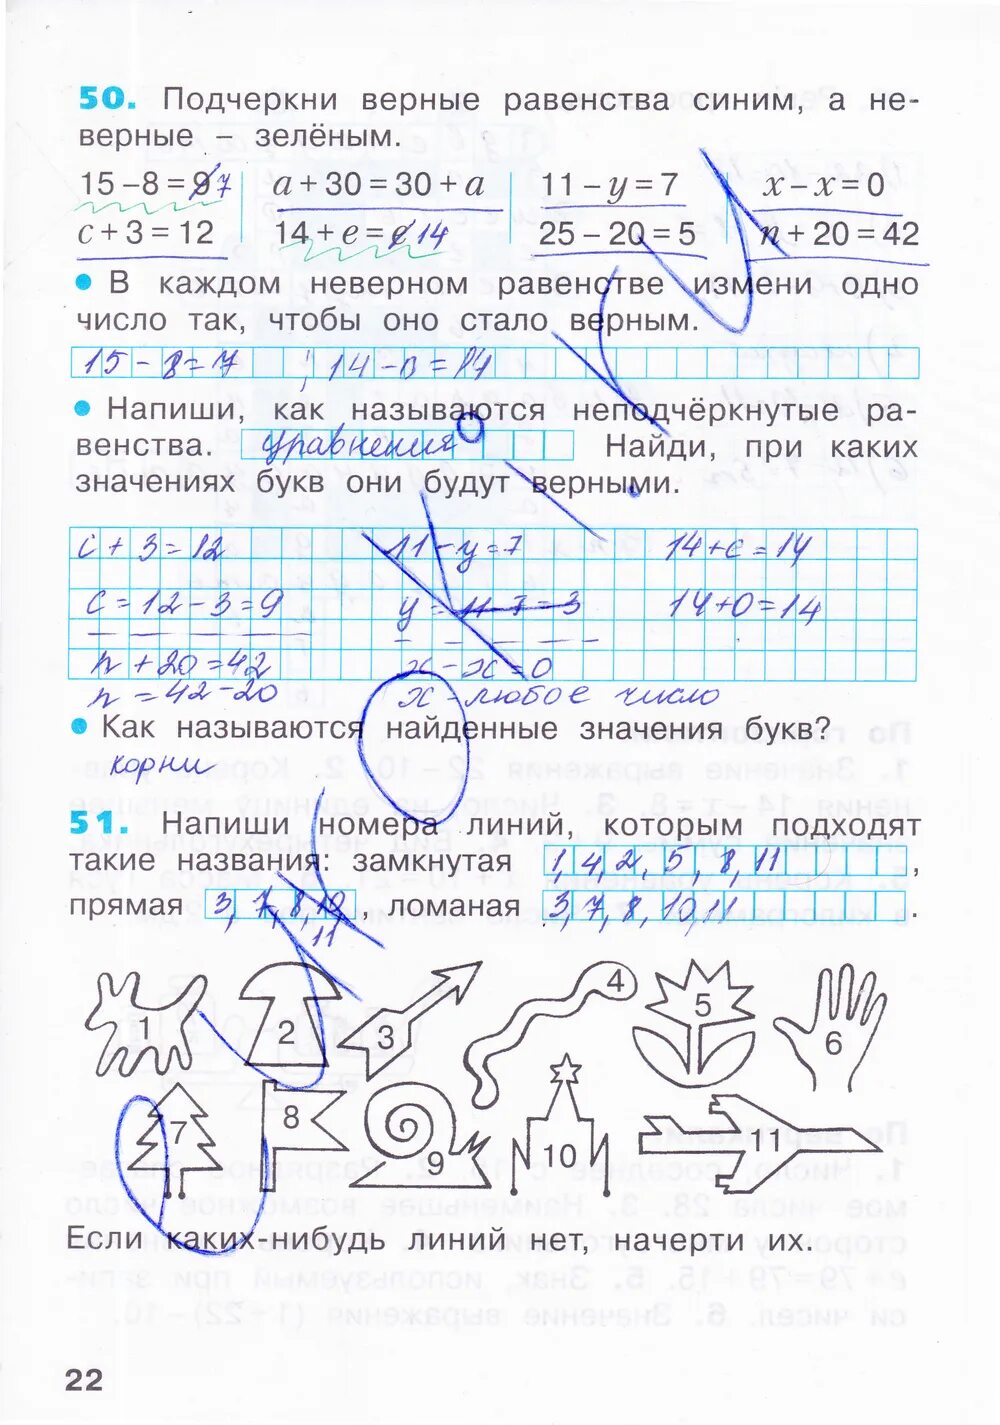 50. Подчеркни верные равенства синим, а не-
верные – зелёным.
15 – 8 = 9 7 a + 30 = 30 + a 11 – y = 7 x – x = 0
c + 3 = 12 14 + e = e 14 25 – 20 = 5 n + 20 = 42
• В каждом неверном равенстве измени одно
число так, чтобы оно стало верным.
15 – 8 = 7 ; 14 – 0 = 14
• Напиши, как называются неподчёркнутые ра-
венства. уравнения Найди, при каких
значениях букв они будут верными.
c + 3 = 12 11 – y = 7 14 + e = 14
c = 12 – 3 = 9 y = 11 – 7 = 3 14 + 0 = 14
n + 20 = 42 x – x = 0
n = 42 – 20 x – любое число
• Как называются найденные значения букв?
корни
51. Напиши номера линий, которым подходят
такие названия: замкнутая 1, 4, 2, 5, 8, 11 ,
прямая 3, 7, 8, 10, 11 ломаная 3, 7, 8, 10, 11 .
1 2 3 4 5 6
7 8 9 10 11
Если каких-нибудь линий нет, начерти их.
22